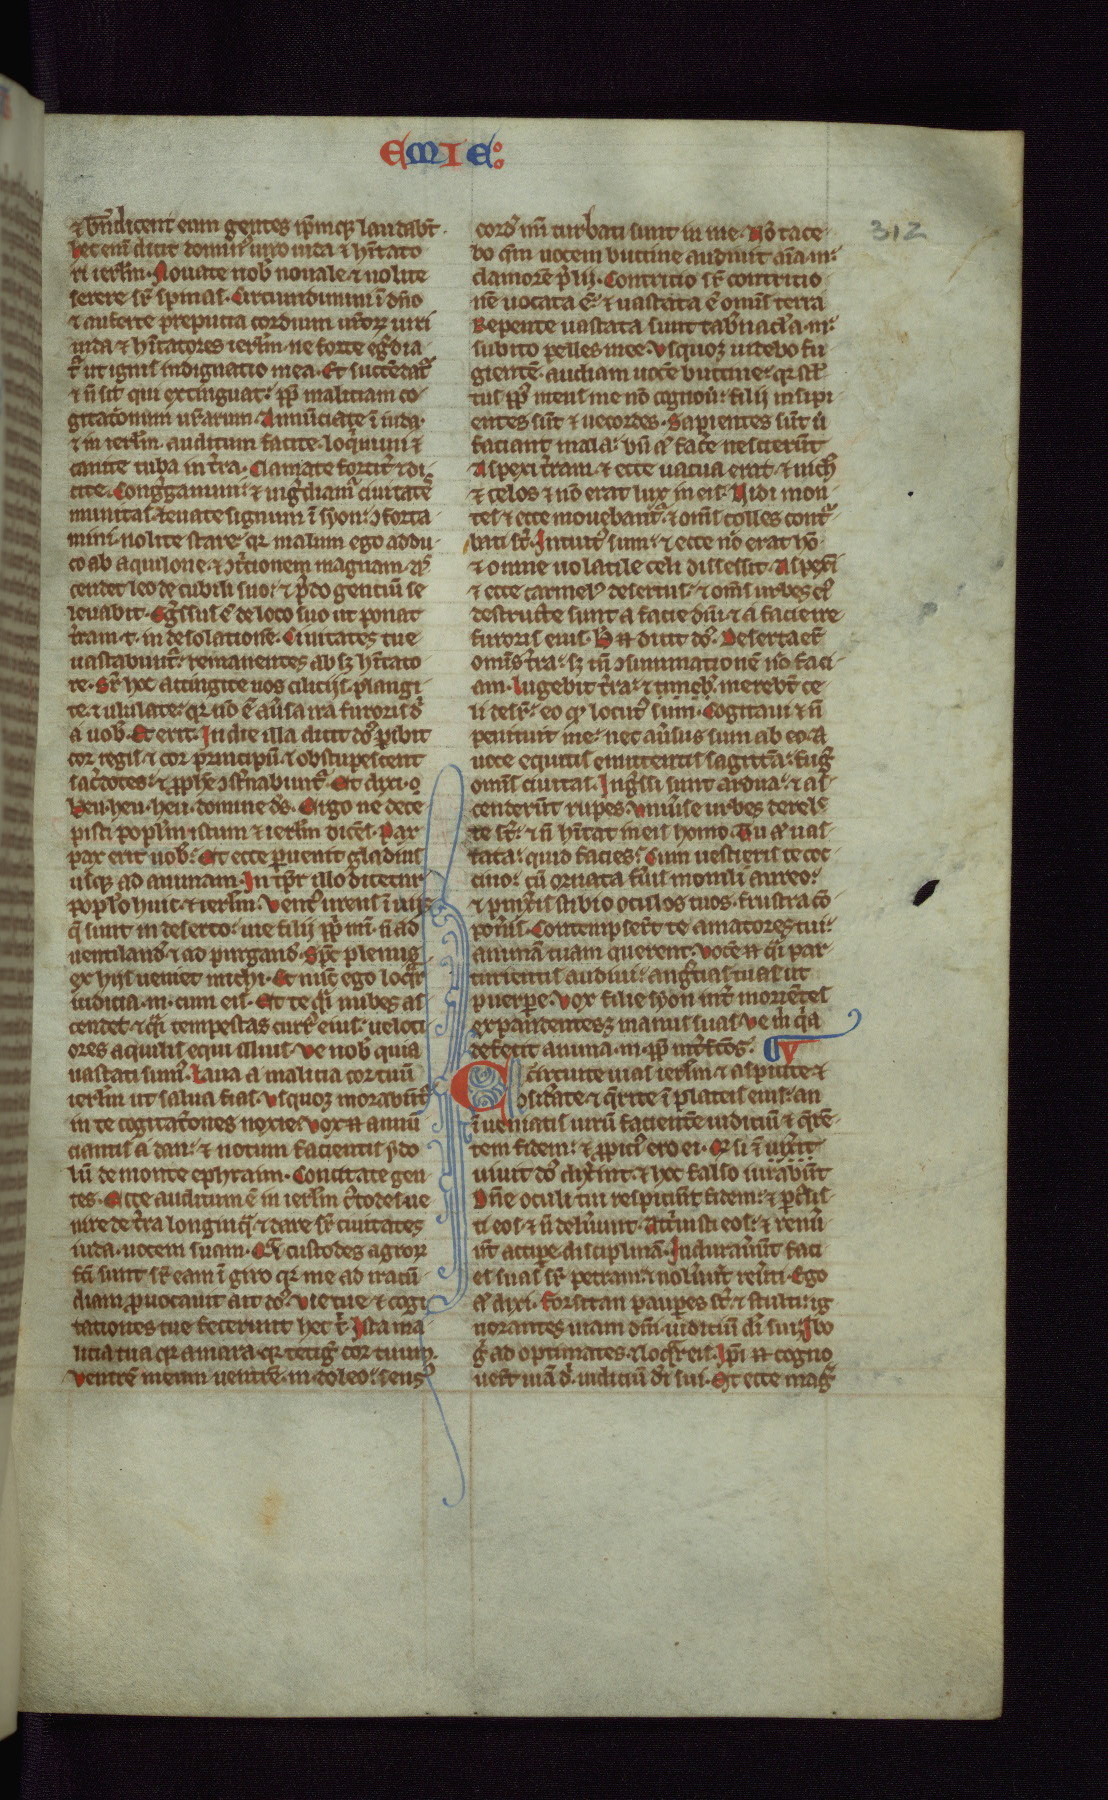 EMIE
312
& bñdicent eum gentes ip̄mq; laudabt̄.
hec em̄ dicit domin᷒ uiro iuda & hītato
ri ierl̄m. Nouate nob᷒ nouale. & nolite
serere sr̄ spinas. Circumdimini ī dn̄o
& auferte preputia cordium ur̄orꝝ uiri
iuda & hītatores ierl̄m. ne forte egᷓdia
tᷓ ut ignis indignatio mea. Et succēdatᷓ
& ñ sit qui extinguat. ꝓp̄ maliciam co
gitationum ur̄arum. Annunciate ī iuda.
& in ierl̄m auditum facite. loq̄mini &
canite tuba in t̄ra. Clamate fortit̄ & di
cite. Congᷓgamini. & ingᷓdiam᷒ ciuitates
munitas. Leuate signum ī syon. ꝯforta
mini. nolite stare. qr malum ego addu
co ab aquilone. & ꝯt̄tionem magnam. As
cendet leo de cubili suo. & p̄do gentiū se
leuabit. Egr̄ssus ē de loco suo ut ponat
t̄ram t. in desolationē. Ciuitates tue
uastabunt᷒. remanentes absq; hītato
re. Sr̄ hec accingite uos cilicijs. plangi
te. & ululate. qr nō ē au̇sa ira furoris dn̄i
a uob᷒. Et erit. In die illa dicit do᷒ ꝑibit
cor regis. & cor principū. & obstupescent
sac̄dotes. & ꝓph̄e ꝯst̄nabunt᷒. Et dixi. o
Heu. heu. heu. domine ds̄. Ergo ne dece
pisti popl̄m istum & ierl̄m dicēs. Pax
pax erit uob᷒. Et ecce ꝑuenit gladius
usq; ad animam. In tp̄r illo dicetur
popl̄o huic. & ierl̄m. Vent᷒ urens ī uijs
q̄ sunt in deserto. uie filij ppl̄i mī. ñ ad
uentiland᷒. & ad purgand᷒. Spc̄ plenus
ex hijs ueniet michi. Et nūc ego loq̄r
iudicia. m. cum eis. Ecce q̄i nubes as
cendet. & q̄i tempestas curr᷒ eius. ueloci
ores aquilis equi illius. Ve nob᷒ quia
uastati sum᷒. Laua a malicia cor tuū
ierl̄m ut salua fias. Vsquoq; morabunt᷒
in te cogitationes noxie. Vox n̄ annū
ciantis a dan. & notum facientis ydo
lū de monte ephraim. Concitate gen
tes. Ecce auditum ē in ierl̄m c̄todes ue
nire de t̄ra longinq̄. & dare sr̄ ciuitates
iuda. uocem suam. Q̄i custodes agrorꝝ
fc̄i sunt sr̄ eam ī giro qr me ad iracū
diam ꝓuocauit ait do᷒. Vie tue & cogi
tationes tue fecerunt hec t᷒. Ista ma
licia tua qr amara. qr tetigᷓ cor tuum.
Ventrē meum uentrē. m. doleo. sens᷒
cord᷒ mī turbati sunt in me. Nō tace
bo qm̄ uocem buccine audiuit aīa. m.
clamorē p̄lij. Contricio sr̄ contricio
nē uocata ē. & uastata ē omīs terra
Repente uastata sunt tab̄nacl̄a. m.
subito pelles mee. Vsquoq; uidebo fu
gientē. audiam uocē buccine. qr stl̄
tus ppl̄s meus me nō cognou̇. filij insipi
entes sūt & uecordes. Sapientes sūt ū
faciant mala. bn̄ aū fac̄e nescierūt
Aspexi t̄ram. & ecce uacua erat. & nich̄
& celos & nō erat lux in eis. Vidi mon
tes & ecce mouebant᷒. & omīs colles cont᷒
bati st̄. Intuit᷒ sum. & ecce nō erat hō.
& omne uolatile celi discessit. Aspexi
& ecce carmel᷒ desertus. & omīs urbes ei᷒
destructe sunt a facie dn̄i. & a facie ire
furoris eius. H̄ n̄ dicit do᷒. Deserta ēt
omīs t̄ra. sꝫ tn̄ ꝯsummationē nō faci
am. Lugebit t̄ra. & tuneb᷒. merebt̄ ce
li desr̄. eo qꝫ locut᷒ sum. Cogitaui & ñ
penituit me. nec au̇sus sum ab eo. A
uoce equitis emittentis sagittā. fugᷓ
omīs ciuitas. Ingᷓssi sunt ardua. & as
cenderūt rupes. Vniu̇se urbes derelc̄
te st̄. & ñ hītat in eis homo. Tu aū uas
tata. quid facies. Cum uestieris te coc
cino. cū ornata fu̇is monili aureo.
& pinx̄is stibio oculos tuos. frustra cō
ponis. Contempser̄t te amatores tui.
animā tuam querent. Vocē n̄ q̄i par
turientis audiui. angᷓtias tuas ut
puerpe. Vox filie syon int̄ morientes
expandentesq; manus suas. Ve m̄ qᷓa
defecit anima. m. ꝓp̄ int̄fc̄os. CV
Circuite uias ierl̄m. & aspicite &
ꝯsid̄ate. & q̄rite ī plateis eius. an
īueniatis uirū facientē iudiciū. & q̄rē
tem fidem. & ꝓpici᷒ ero ei. Q̇ si ī uix̄it
uiuit do᷒ dix̄int. & hec falso iurabūt
Dn̄e oculi tui respiciūt fidem. & ꝑcussis
ti eos. & ñ doluert. Attriuisti eos. & renu̇
ūt accipe disciplinā. Indurau̇ūt faci
es suas sr̄ petram. & nolu̇ūt reu̇ti. Ego
aū dixi. Forsitan pauꝑes st̄. & stulti. ig
norantes uiam dn̄i. iudiciū di̇ sui. Ibo
g᷒ ad optimates. & loq̄r eis. Ip̄i n̄ cogno
uer̄t uiā d᷒. iudiciū di̇ sui. Et ecce magᷓ